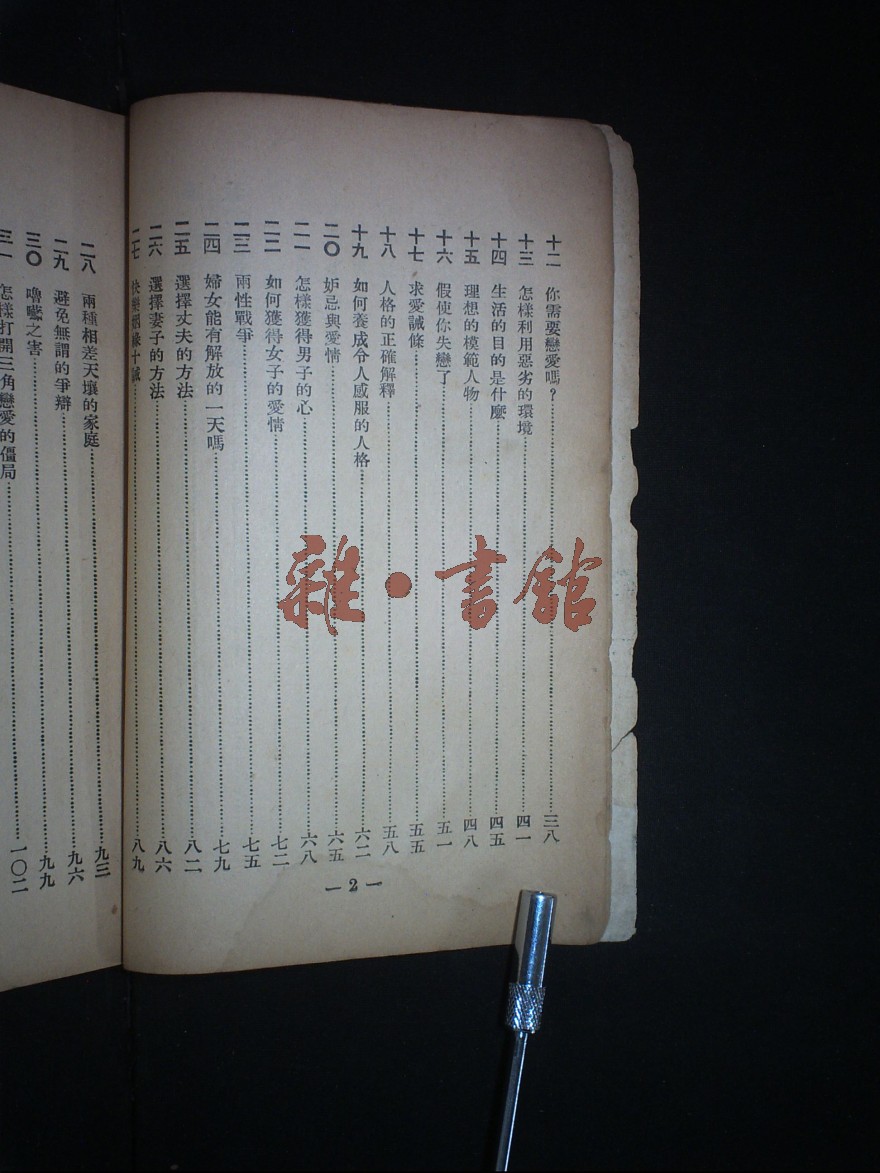 十二 你需要戀愛嗎？……三八
十三 怎樣利用惡劣的環境……四一
十四 生活的目的是什麽……四五
十五 理想的模範人物……四八
十六 假使你失戀了……五一
十七 求愛誡條……五五
十八 人格的正確解釋……五八
十九 如何養成令人感服的人格……六二
二〇 妒忌與愛情……六五
二一 怎樣獲得男子的心……六八
二二 如何獲得女子的愛情……七二
二三 兩性戰爭……七五
二四 婦女能有解放的一天嗎……七九
二五 選擇丈夫的方法……八二
二六 選擇妻子的方法……八六
二七 快樂姻緣十誡……八九
— 2 —
二八 兩種相差天壤的家庭……九三
二九 避免無謂的爭辯……九六
三〇 嚕囌之害……九九
三一 怎樣打開三角戀愛的僵局……一〇二
雜·書館